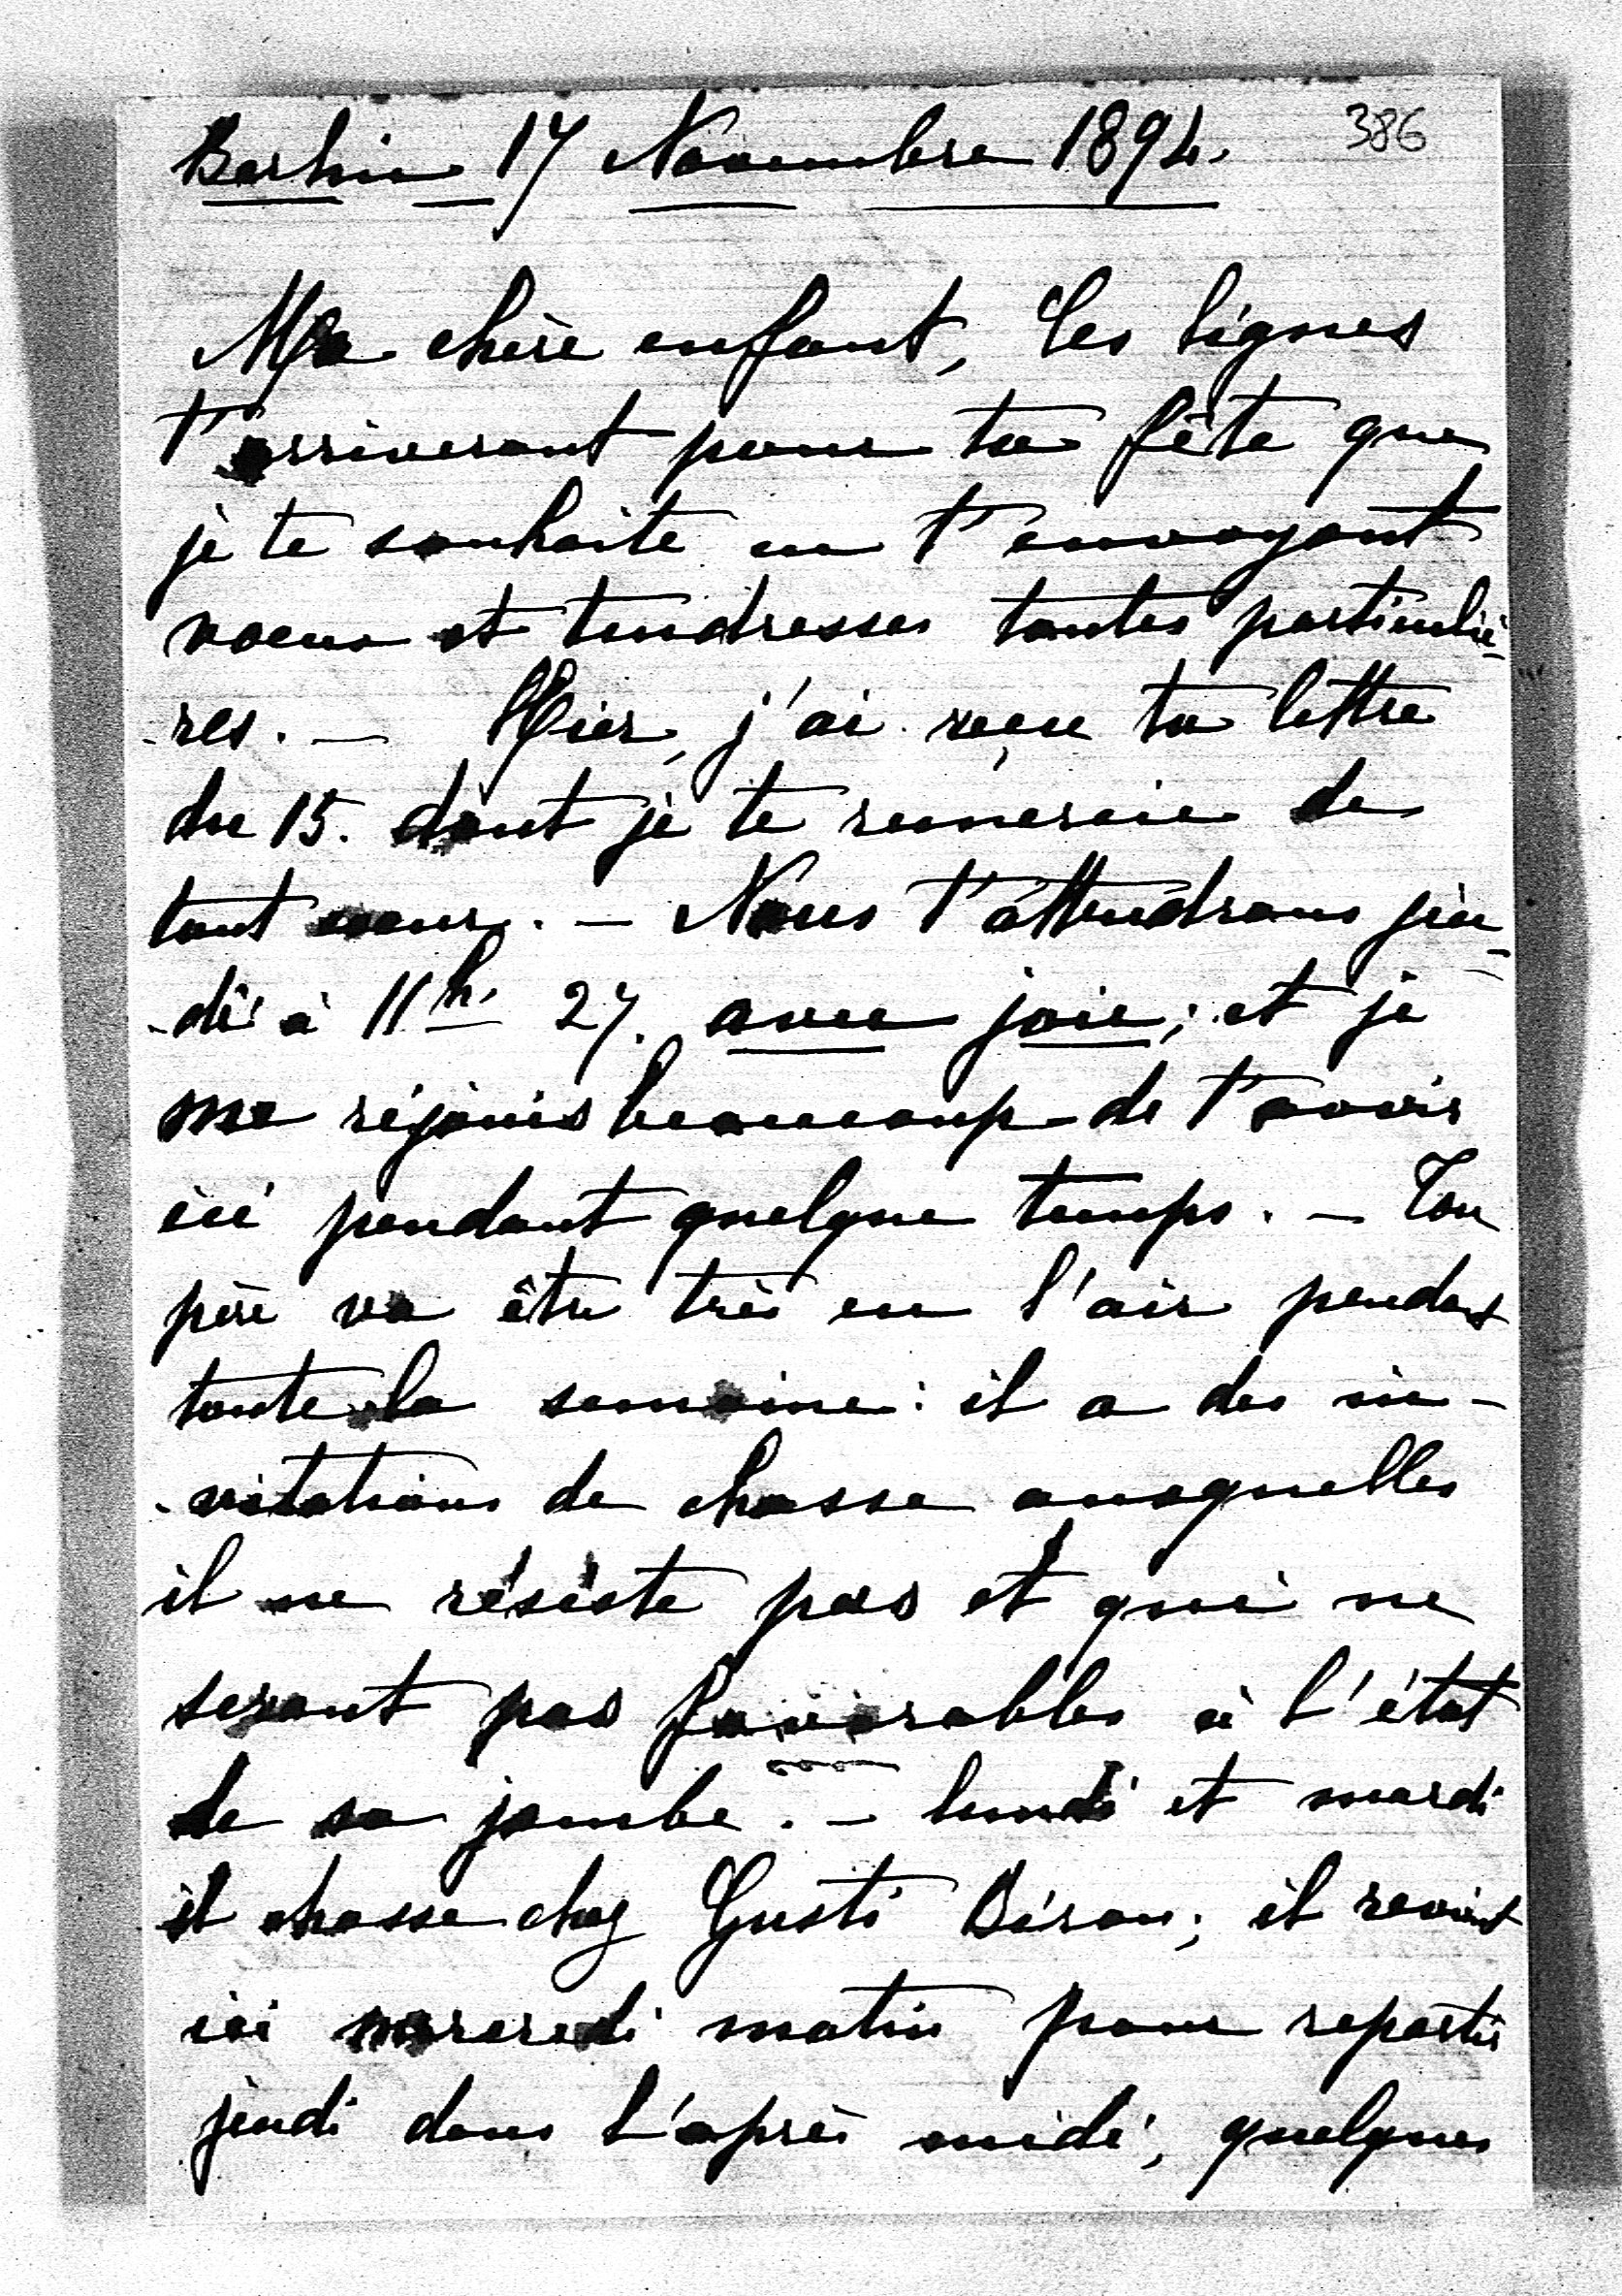 Berlin 17 Novembre 1894. 386
Ma chère enfant, Ces lignes
t'arriveront pour ta fête que
je te souhaite en t'envoyant
voeux et tendresses toutes particuliè-
-res. — Hier, j'ai reçu ta lettre
du 15. dont je te remercie de
tout coeur. — Nous t'attendrons jeu-
-di à 11h. 27. avec joie; et je
me réjouis beaucoup de t'avoir
ici pendant quelque temps. — Ton
père va être très en l'air pendant
toute la semaine: il a des in-
-vitations de chasse auxquelles
il ne résiste pas et qui ne
seront pas favorables à l'état
de sa jambe. — lundi et mardi
il chasse chez Gusti Biron; il revient
ici mercredi matin pour repartir
jeudi dans l'après midi, quelques